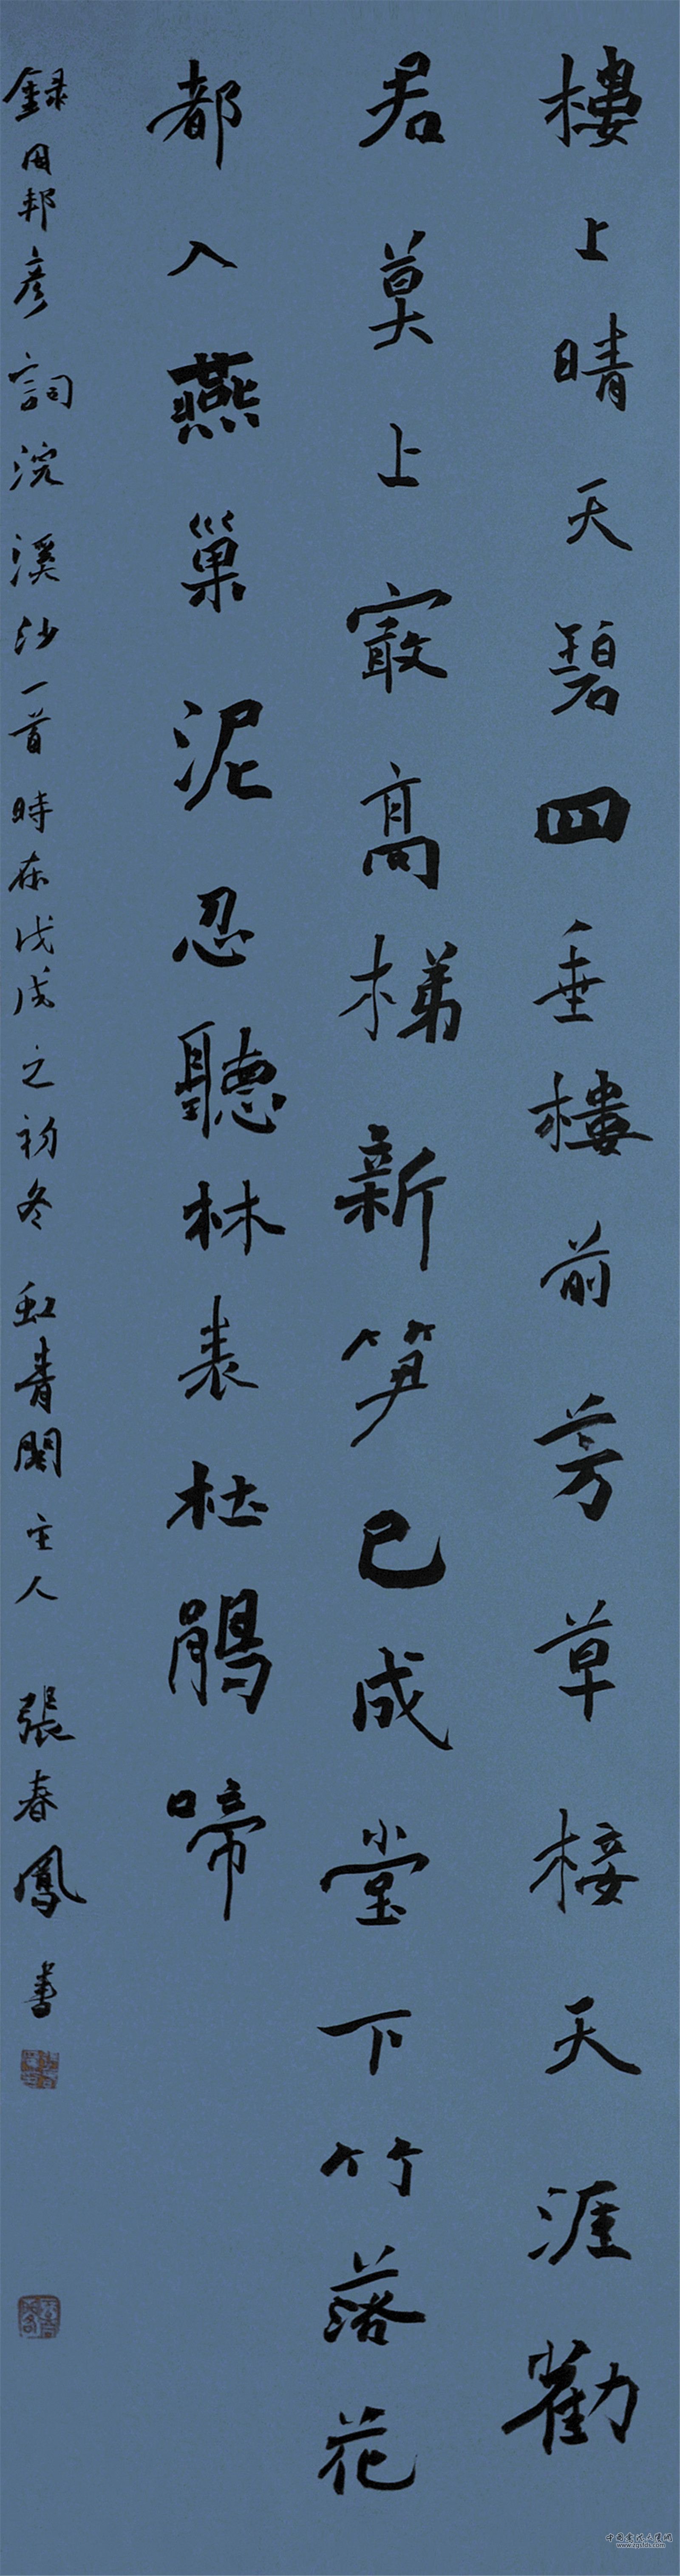 樓上晴天碧四垂樓前芳草接天涯勸
君莫上㝡高梯新笋已成堂下竹落花
都入燕巢泥忍聽林表杜鵑啼
録周邦彦詞浣溪沙一首時在戊戌之初冬虹青閣主人張春鳳書
www.zgshs.com